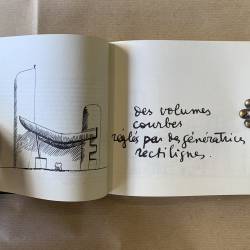 Des volumes
courbes
réglés par des génératrices
rectilignes.